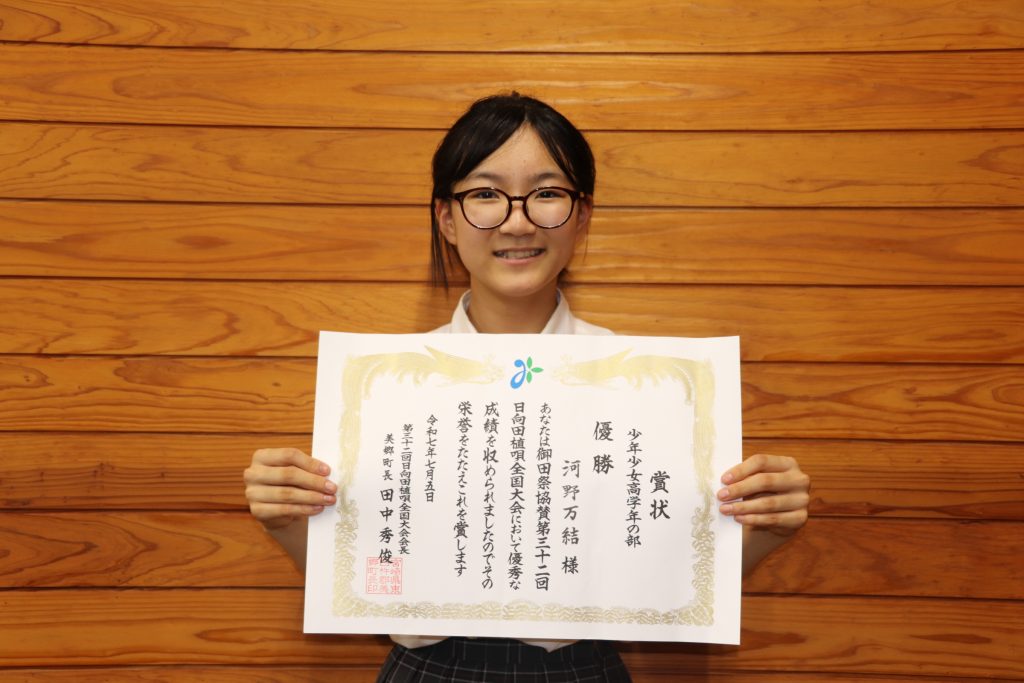 賞状
少年少女高学年の部
優勝
河野万結様
あなたは御田祭協賛第三十二回
日向田植唄全国大会において優秀な
成績を収められましたのでその
栄誉をたたえこれを賞します
令和七年七月五日
第三十二回日向田植唄全国大会会長
美郷町長 田中秀俊